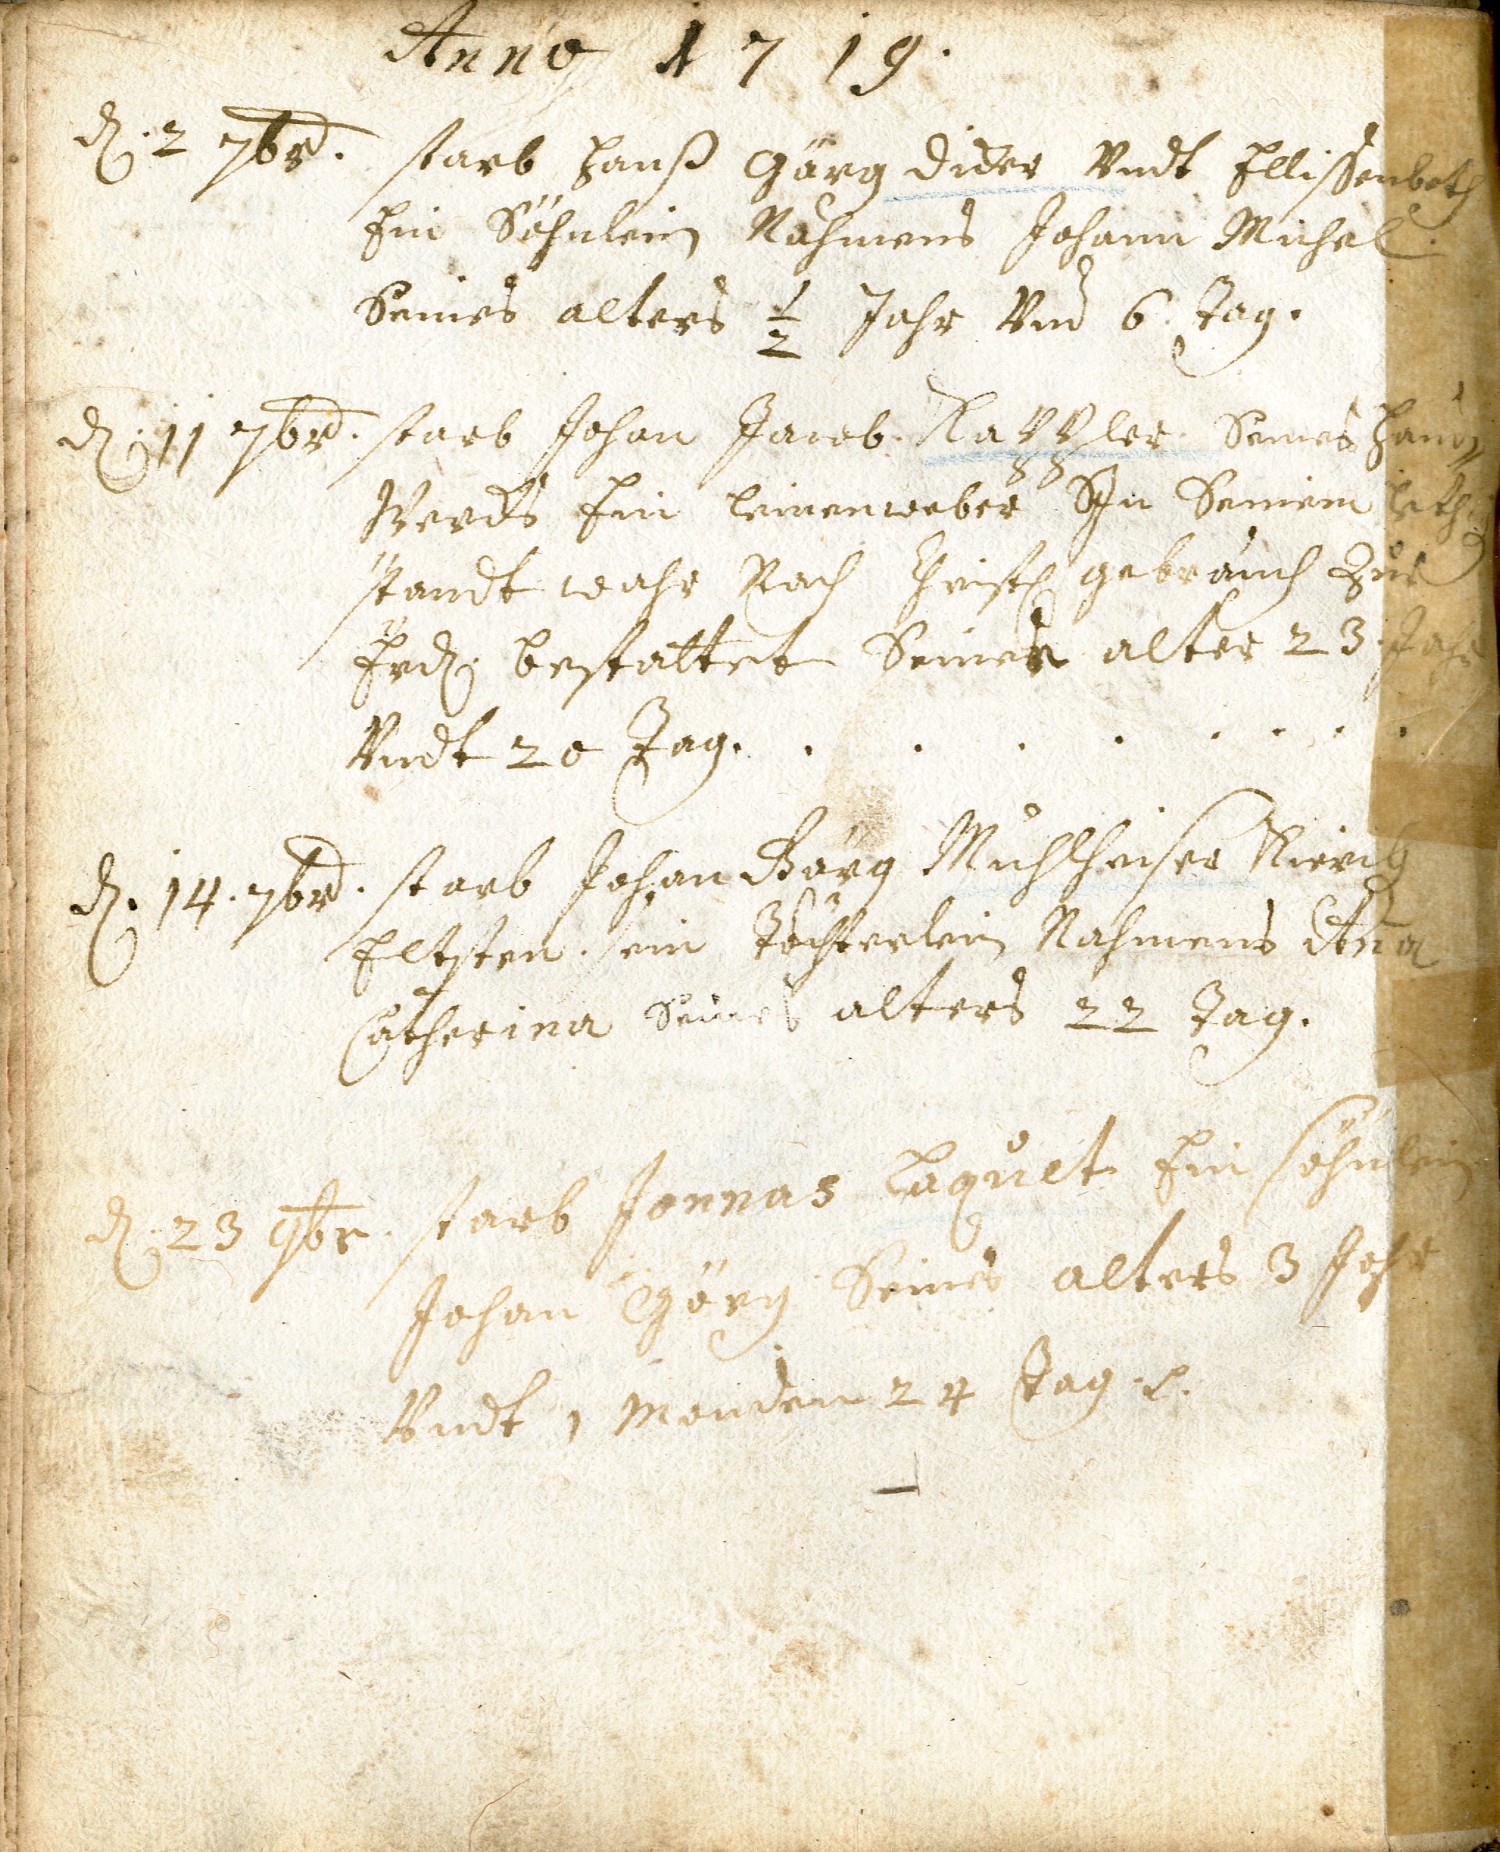 Anno 1719.
d. 2 7br. starb Hanß Görg Dider Undt Ellissenbeth
Ein Söhnlein Nahmens Johann Michel.
Seines alters ½ Jahr Und 6 Tag.
d. 11 7br. starb Johan Jacob Seines Handt
Wercks Ein leinenweber In Seinem
standt wahr Nach Christl gebrauch Zur
Erd. bestattet Seines alter 23 Jahr
Undt 20 Tag. . . . . . . . . .
d. 14. 7br. starb Johan Görg Mühlheiser
Eltsten. ein Töchterlein Nahmens Aña
Catherina Seines alters 22 Tag.
d. 23 9br. starb Jonnas Laquet Ein söhnlein
Johan Görg Seines alters 3 Jahr
Undt 1 Monden 24 Tag.